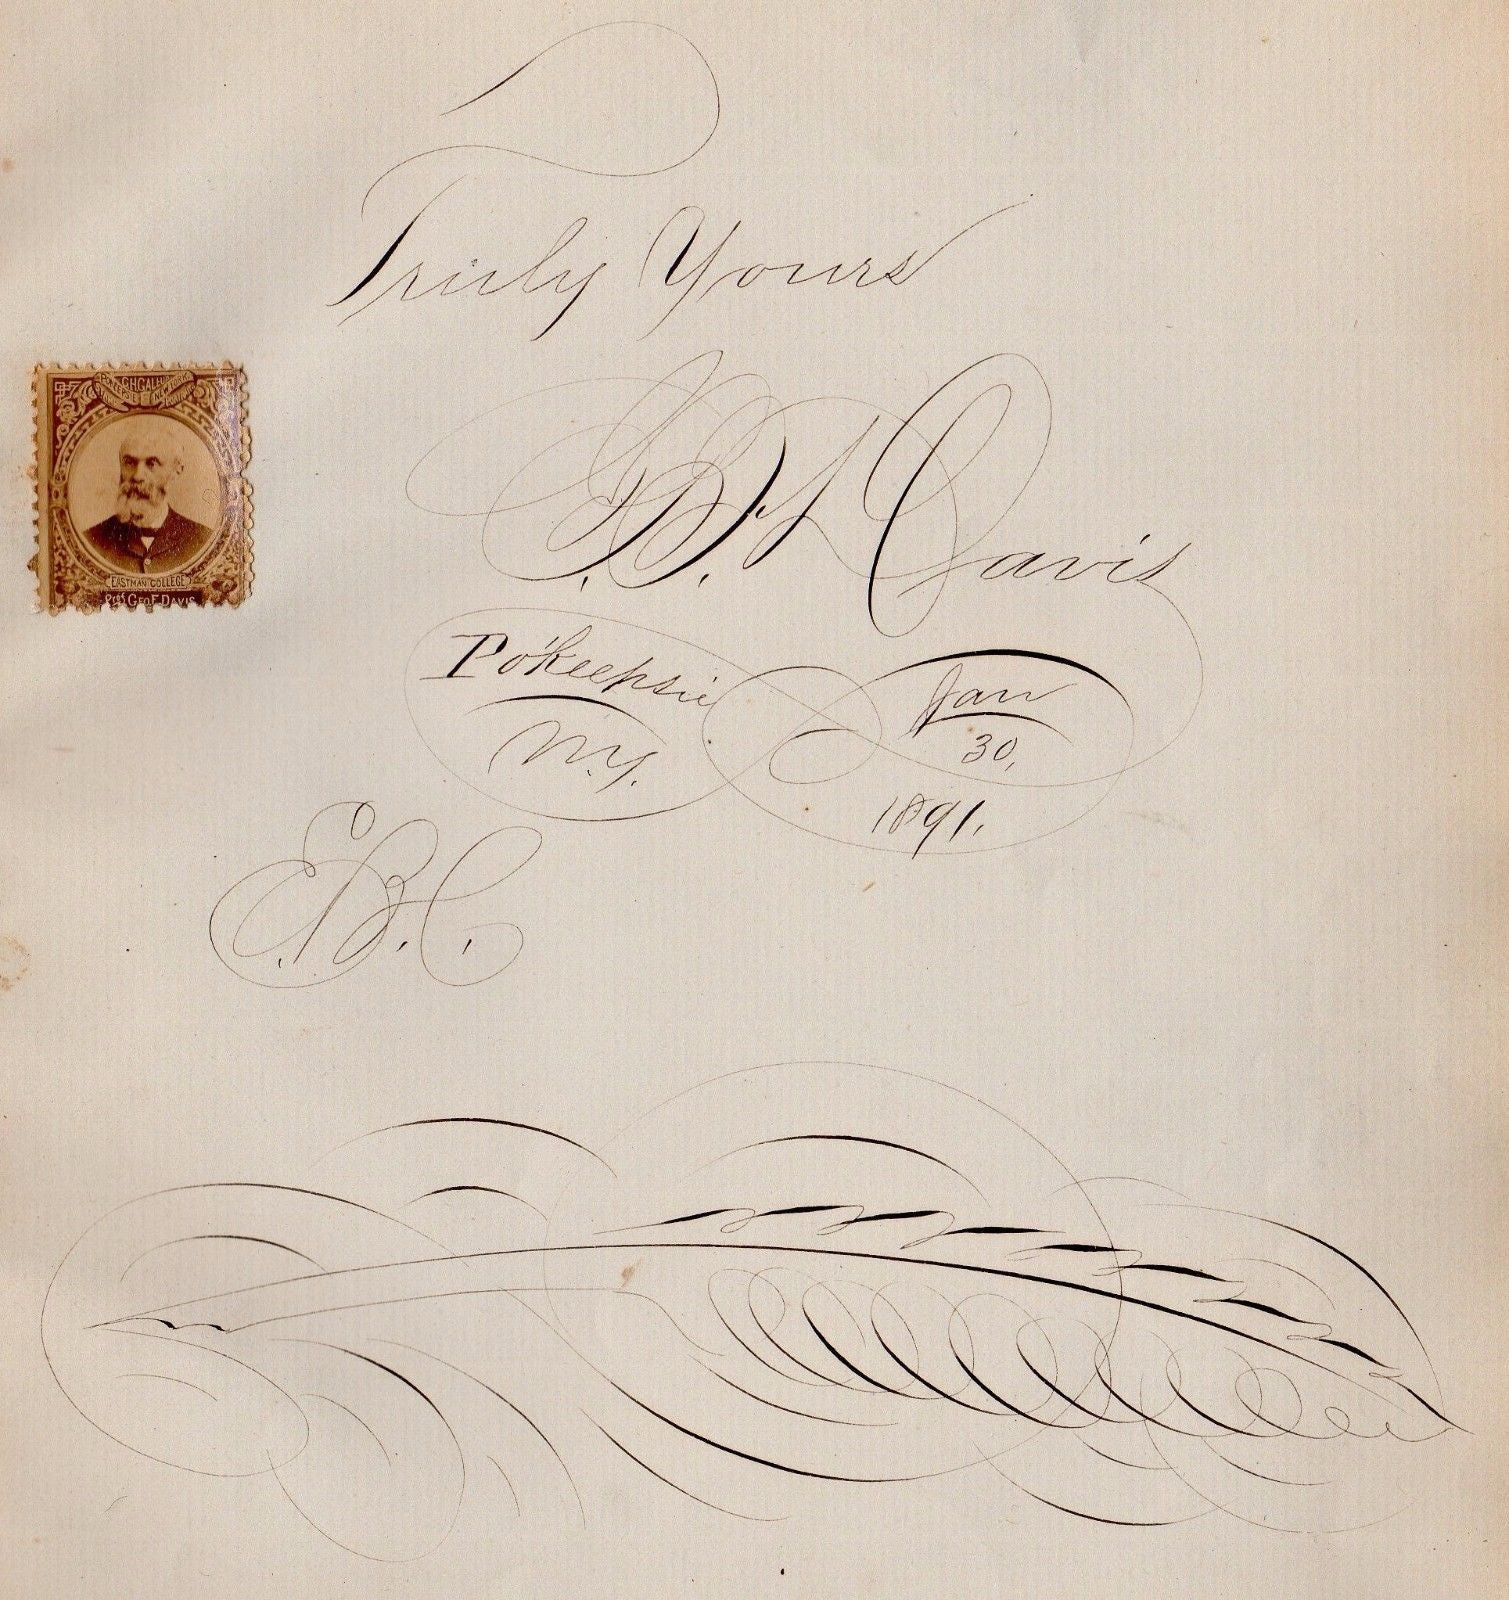 Truly Yours
G. F. Davis
Po'keepsie
N.Y.
Jan
30,
1891.
E.B.C.
EASTMAN COLLEGE
Prof GEO F DAVIS